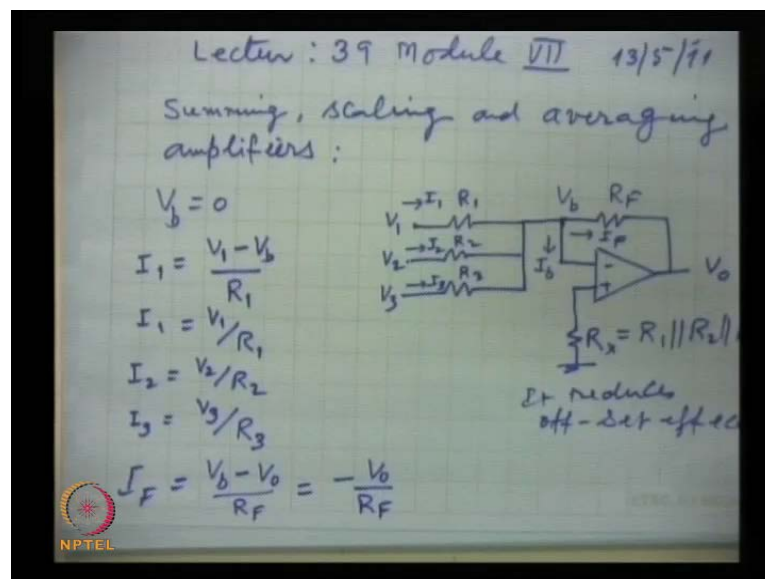 Lectur : 39 Module VII 13/5/11
Summing, scaling and averaging
amplifiers :
V_b = 0
I_1 = V_1 - V_b / R_1
I_1 = V_1/R_1
I_2 = V_2/R_2
I_3 = V_3/R_3
I_F = V_b - V_o / R_F = - V_o / R_F
V_1 → I_1 R_1
V_2 → I_2 R_2
V_3 → I_3 R_3
V_b R_F
→ I_F
↓ I_b
-
+
V_o
R_x = R_1 || R_2 ||
It reduces
off-set effec
NPTEL